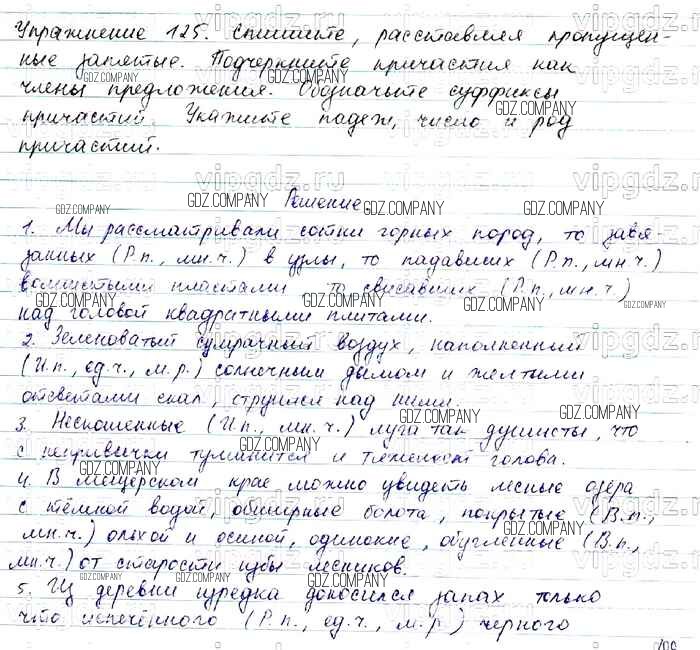 Упражнение 125. Спишите, расставляя пропущен-
ные запятые. Подчеркните причастия как
члены предложения. Обозначьте суффиксы
причастий. Укажите падеж, число и род
причастий.
Решение
1. Мы рассматривали сотни горных пород, то завя-
занных (Р.п., мн.ч.) в узлы, то падавших (Р.п., мн.ч.)
волнистыми пластами то свисавших (Р.п., мн.ч.)
над головой квадратными плитами.
2. Зеленоватый сумрачный воздух, наполненный
(И.п., ед.ч., м.р.) солнечным дымом и желтыми
отсветами скал, струился над ними.
3. Нескошенные (И.п., мн.ч.) луга так душисты, что
с непривычки туманится и тяжелеет голова.
4. В Мещерском крае можно увидеть лесные озёра
с тёмной водой, обширные болота, покрытые (В.п.,
мн.ч.) ольхой и осиной, одинокие, обугленные (В.п.,
мн.ч.) от старости избы лесников.
5. Из деревни изредка доносился запах только
что испечённого (Р.п., ед.ч., м.р.) черного